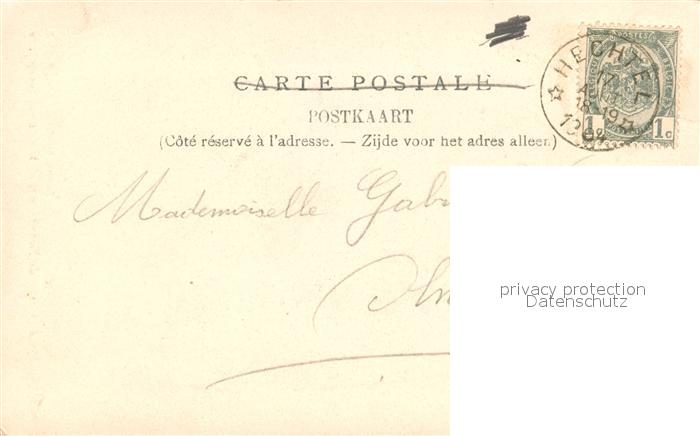 CARTE POSTALE
POSTKAART
(Côté réservé à l'adresse. — Zijde voor het adres alleen)
HECHTEL
17
1904
POSTES
1 1c
Mademoiselle
privacy protection
Datenschutz